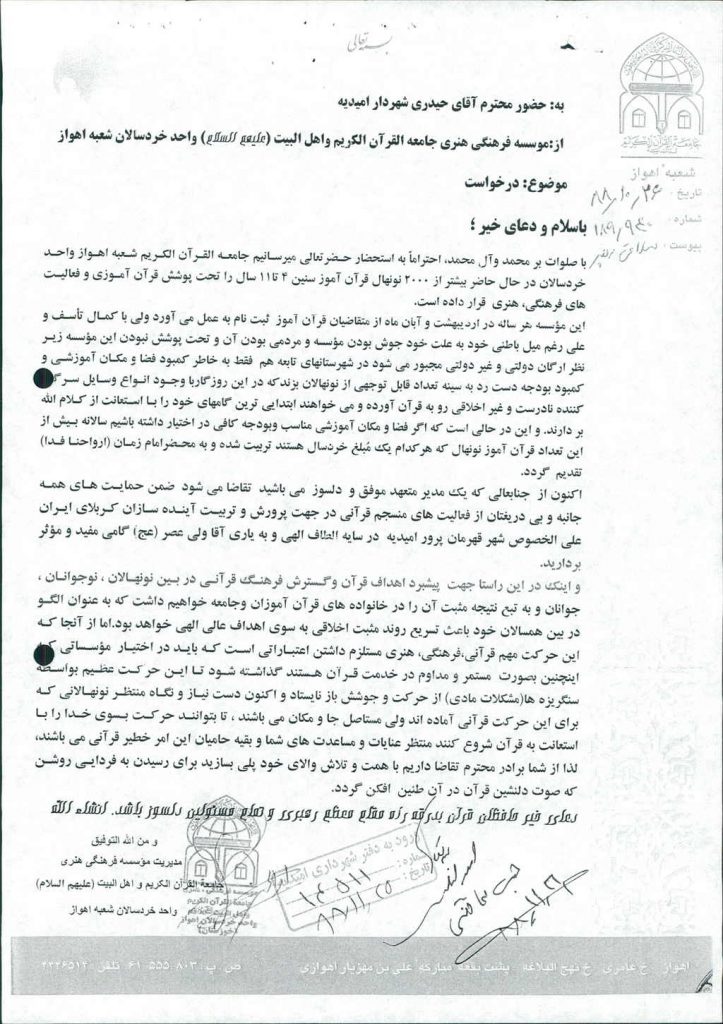 بسمه تعالی
جامعة القرآن الکریم
شعبه اهواز
تاریخ
شماره
پیوست
به: حضور محترم آقای حیدری شهردار امیدیه
از:موسسه فرهنگی هنری جامعه القرآن الکریم واهل البیت (علیهم السلام) واحد خردسالان شعبه اهواز
موضوع: درخواست
باسلام و دعای خیر ؛
با صلوات بر محمد وآل محمد، احتراماً به استحضار حضرتعالی میرسانیم جامعه القرآن الکریم شعبه اهواز واحد
خردسالان در حال حاضر بیشتر از ۲۰۰۰ نونهال قرآن آموز سنین ۴ تا۱۱ سال را تحت پوشش قرآن آموزی و فعالیت
های فرهنگی، هنری قرار داده است.
این مؤسسه هر ساله در اردیبهشت و آبان ماه از متقاضیان قرآن آموز ثبت نام به عمل می آورد ولی با کمال تأسف و
علی رغم میل باطنی خود به علت خود جوش بودن مؤسسه و مردمی بودن آن و تحت پوشش نبودن این مؤسسه زیر
نظر ارگان دولتی و غیر دولتی مجبور می شود در شهرستانهای تابعه هم فقط به خاطر کمبود فضا و مکان آموزشی و
کمبود بودجه دست رد به سینه تعداد قابل توجهی از نونهالان بزندکه در این روزگاربا وجود انواع وسایل
کننده نادرست و غیر اخلاقی رو به قرآن آورده و می خواهند ابتدایی ترین گامهای خود را با استعانت از کلام الله
بر دارند. و این در حالی است که اگر فضا و مکان آموزشی مناسب وبودجه کافی در اختیار داشته باشیم سالانه بیش از
این تعداد قرآن آموز نونهال که هرکدام یک مُبلغ خردسال هستند تربیت شده و به محضرامام زمان (ارواحنا فدا)
تقدیم گردد.
اکنون از جنابعالی که یک مدیر متعهد موفق و دلسوز می باشید تقاضا می شود ضمن حمایت های همه
جانبه و بی دریغتان از فعالیت های منسجم قرآنی در جهت پرورش و تربیت آینده سازان کربلای ایران
علی الخصوص شهر قهرمان پرور امیدیه در سایه الطاف الهی و به یاری آقا ولی عصر (عج) گامی مفید و مؤثر
بردارید.
و اینک در این راستا جهت پیشبرد اهداف قرآن وگسترش فرهنگ قرآنی در بین نونهالان ، نوجوانان ،
جوانان و به تبع نتیجه مثبت آن را در خانواده های قرآن آموزان وجامعه خواهیم داشت که به عنوان الگو
در بین همسالان خود باعث تسریع روند مثبت اخلاقی به سوی اهداف عالی الهی خواهد بود.اما از آنجا که
این حرکت مهم قرآنی،فرهنگی، هنری مستلزم داشتن اعتباراتی است که باید در اختیار مؤسساتی
اینچنین بصورت مستمر و مداوم در خدمت قرآن هستند گذاشته شود تا این حرکت عظیم بواسطه
سنگریزه ها(مشکلات مادی) از حرکت و جوشش باز نایستاد و اکنون دست نیاز و نگاه منتظر نونهالانی که
برای این حرکت قرآنی آماده اند ولی مستاصل جا و مکان می باشند ، تا بتوانند حرکت بسوی خدا را با
استعانت به قرآن شروع کنند منتظر عنایات و مساعدت های شما و بقیه حامیان این امر خطیر قرآنی می باشند،
لذا از شما برادر محترم تقاضا داریم با همت و تلاش والای خود پلی بسازید برای رسیدن به فردایی روشن
که صوت دلنشین قرآن در آن طنین افکن گردد.
دعای خیر حافظان قرآن بدرقه راه مقام معظم رهبری و تمام مسئولین دلسوز باشد. انشاء الله
و من الله التوفیق
مدیریت مؤسسه فرهنگی هنری
جامعة القرآن الکریم و اهل البیت (علیهم السلام)
واحد خردسالان شعبه اهواز
ورود به دفتر شهرداری امیدیه
شماره: ۱۴۵۱۱
تاریخ: ۸۸/۱۱/۲۵
اهواز خ عامری خ نهج البلاغه پشت بقعه مبارکه علی بن مهزیار اهوازی ص.پ: ۸۰۳-۶۱۵۵۵ تلفن: ۲۲۲۶۵۱۴